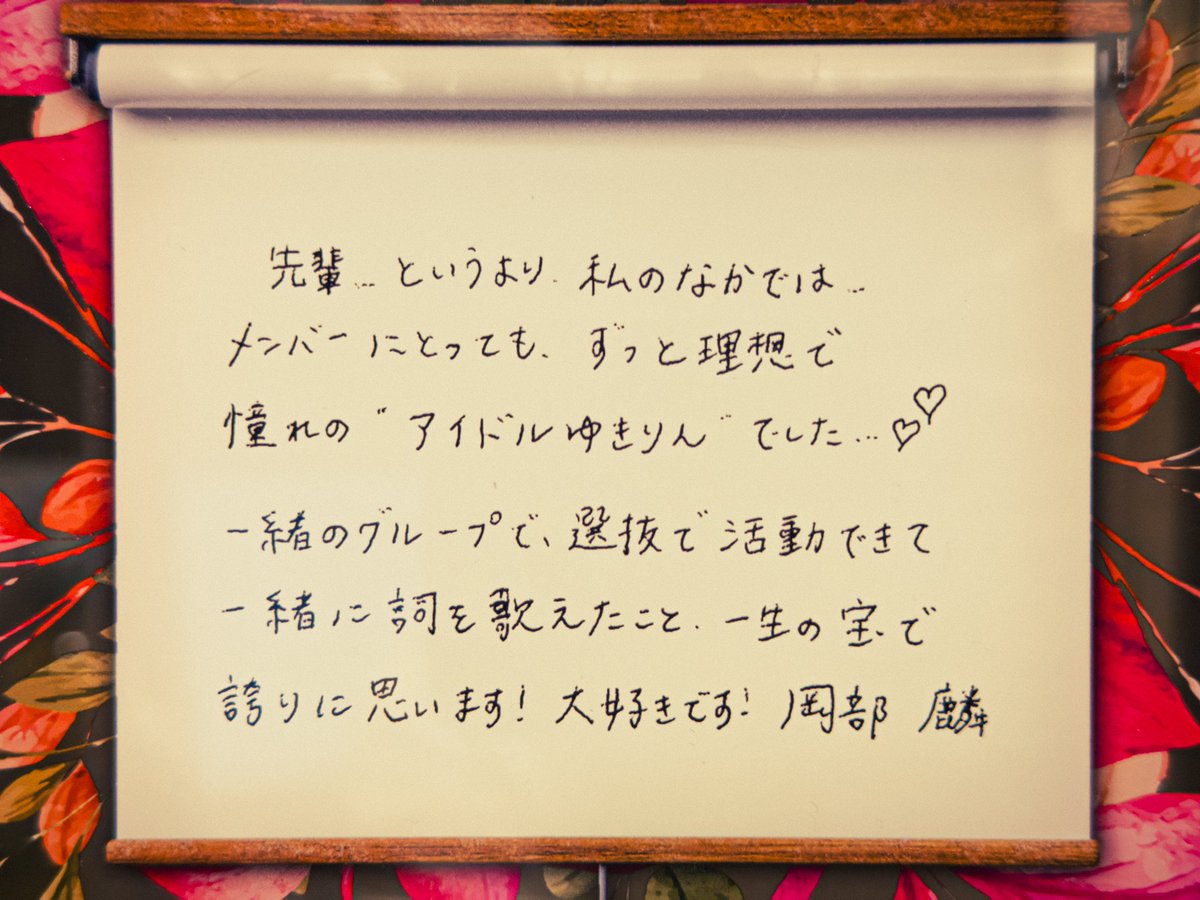 先輩… というより… 私のなかでは…
メンバーにとっても、ずっと理想で
憧れの "アイドルゆきりん" でした…♡♡
一緒のグループで、選抜で活動できて
一緒に詞を歌えたこと、一生の宝で
誇りに思います! 大好きです! 岡部 麟